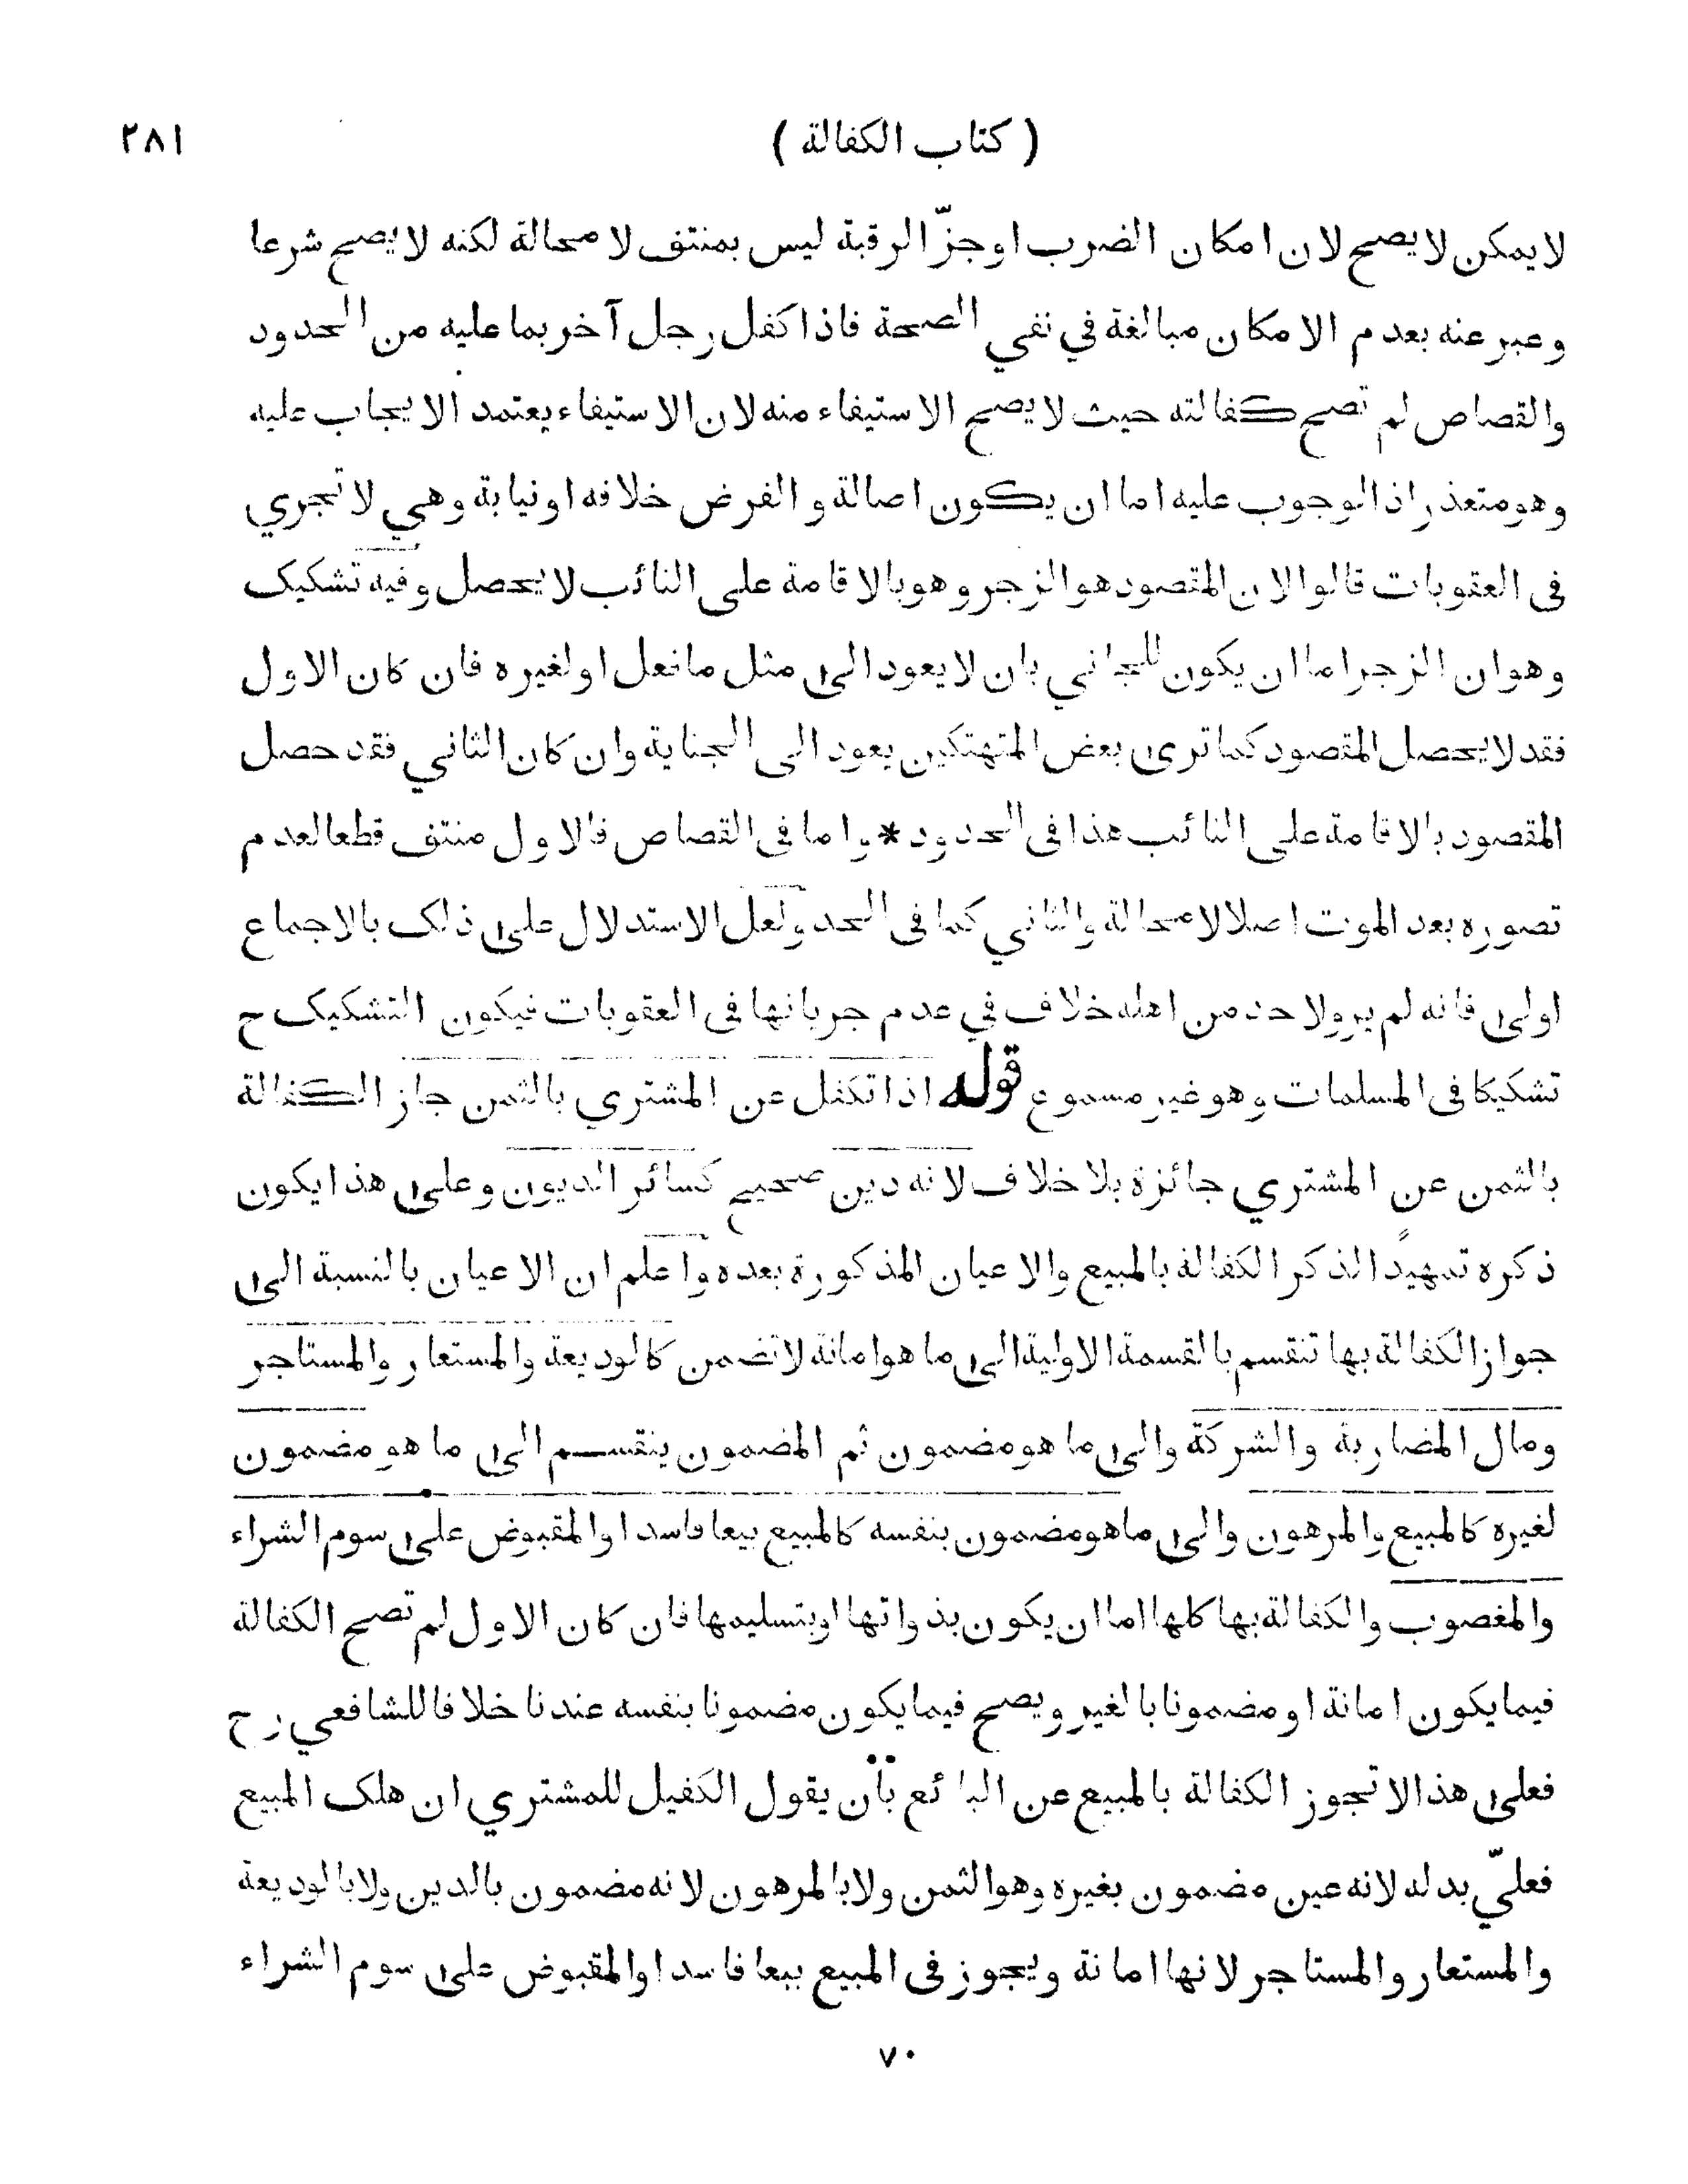 ( كتاب الكفالة ) ٢٨١
لا يمكن لا يصح لان امكان الضرب او جزّ الرقبة ليس بمنتف لا محالة لكنه لا يصح شرعا
وعبر عنه بعدم الامكان مبالغة في نفي الصحة فاذا كفل رجل آخر بما عليه من الحدود
والقصاص لم تصح كفالته حيث لا يصح الاستيفاء منه لان الاستيفاء يعتمد الايجاب عليه
وهو متعذر اذ الوجوب عليه اما ان يكون اصالة و الفرض خلافه او نيابة وهي لا تجري
فى العقوبات قالوا لان المقصود هو الزجر وهو بالاقامة على النائب لا يحصل وفيه تشكيك
وهو ان الزجر اما ان يكون للجاني بان لا يعود الى مثل ما فعل او لغيره فان كان الاول
فقد لا يحصل المقصود كما ترى بعض المتهتكين يعود الى الجناية وان كان الثاني فقد حصل
المقصود بالاقامة على النائب هذا فى الحدود * واما فى القصاص فالاول منتف قطعا لعدم
تصوره بعد الموت اصلا لا محالة والثاني كما فى الحد ولعل الاستدلال على ذلك بالاجماع
اولى فانه لم يرو لاحد من اهله خلاف في عدم جريانها فى العقوبات فيكون التشكيك ح
تشكيكا فى المسلمات وهو غير مسموع قوله اذا تكفل عن المشتري بالثمن جاز الكفالة
بالثمن عن المشتري جائزة بلا خلاف لانه دين صحيح كسائر الديون وعلى هذا يكون
ذكره تمهيدا لذكر الكفالة بالمبيع والاعيان المذكورة بعده واعلم ان الاعيان بالنسبة الى
جواز الكفالة بها تنقسم بالقسمة الاولية الى ما هو امانة لا تضمن كالوديعة والمستعار والمستاجر
ومال المضاربة والشركة والى ما هو مضمون ثم المضمون ينقسم الى ما هو مضمون
لغيره كالمبيع والمرهون والى ما هو مضمون بنفسه كالمبيع بيعا فاسدا والمقبوض على سوم الشراء
والمغصوب والكفالة بها كلها اما ان يكون بذواتها او بتسليمها فان كان الاول لم تصح الكفالة
فيما يكون امانة او مضمونا بالغير ويصح فيما يكون مضمونا بنفسه عندنا خلافا للشافعي رح
فعلى هذا لا تجوز الكفالة بالمبيع عن البائع بأن يقول الكفيل للمشتري ان هلك المبيع
فعليّ بدله لانه عين مضمون بغيره وهو الثمن ولا بالمرهون لانه مضمون بالدين ولا بالوديعة
والمستعار والمستاجر لانها امانة ويجوز فى المبيع بيعا فاسدا والمقبوض على سوم الشراء
٧٠